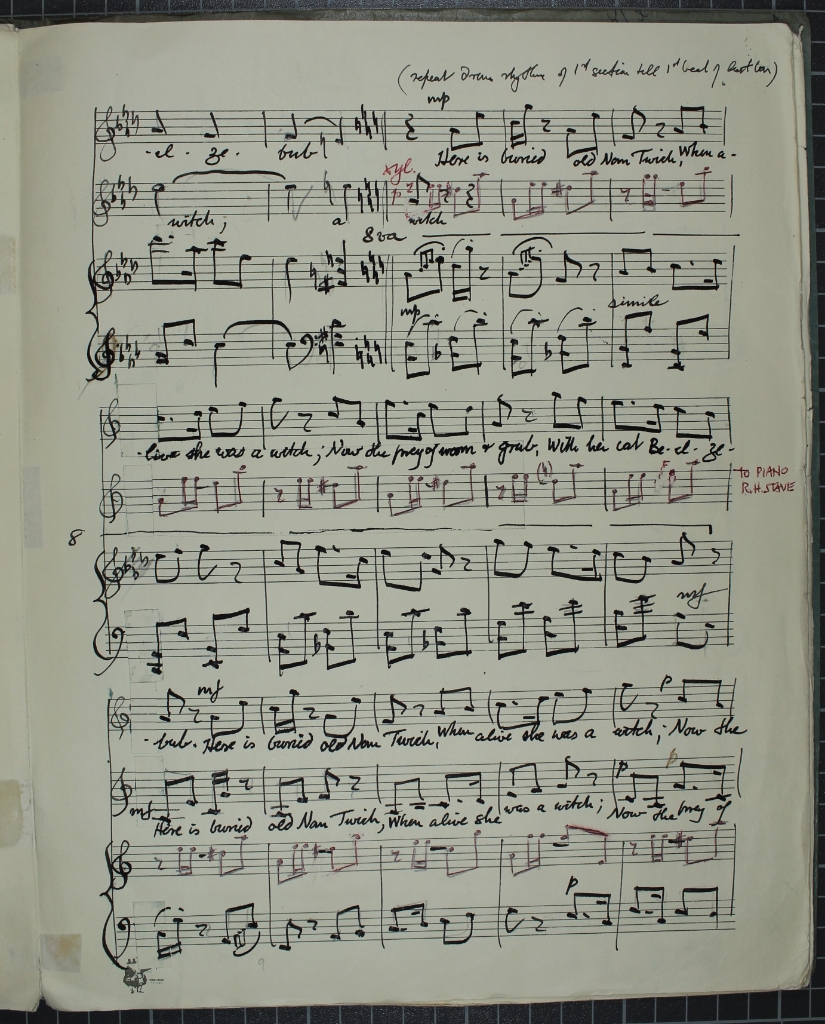 (repeat drum rhythm of 1st section till 1st beat of last bar)
mp
-el- ze- bub
Here is buried old Nan Twich, When a-
xyl.
p
witch; a witch
8va
mp
simile
-live she was a witch; Now the prey of worm & grub, With her cat Be-el-ze-
TO PIANO
R.H. STAVE
8
mf
mf
p
-bub. Here is buried old Nan Twich, When alive she was a witch; Now the
mf
p
p
Here is buried old Nan Twich, When alive she was a witch; Now the prey of
p
9